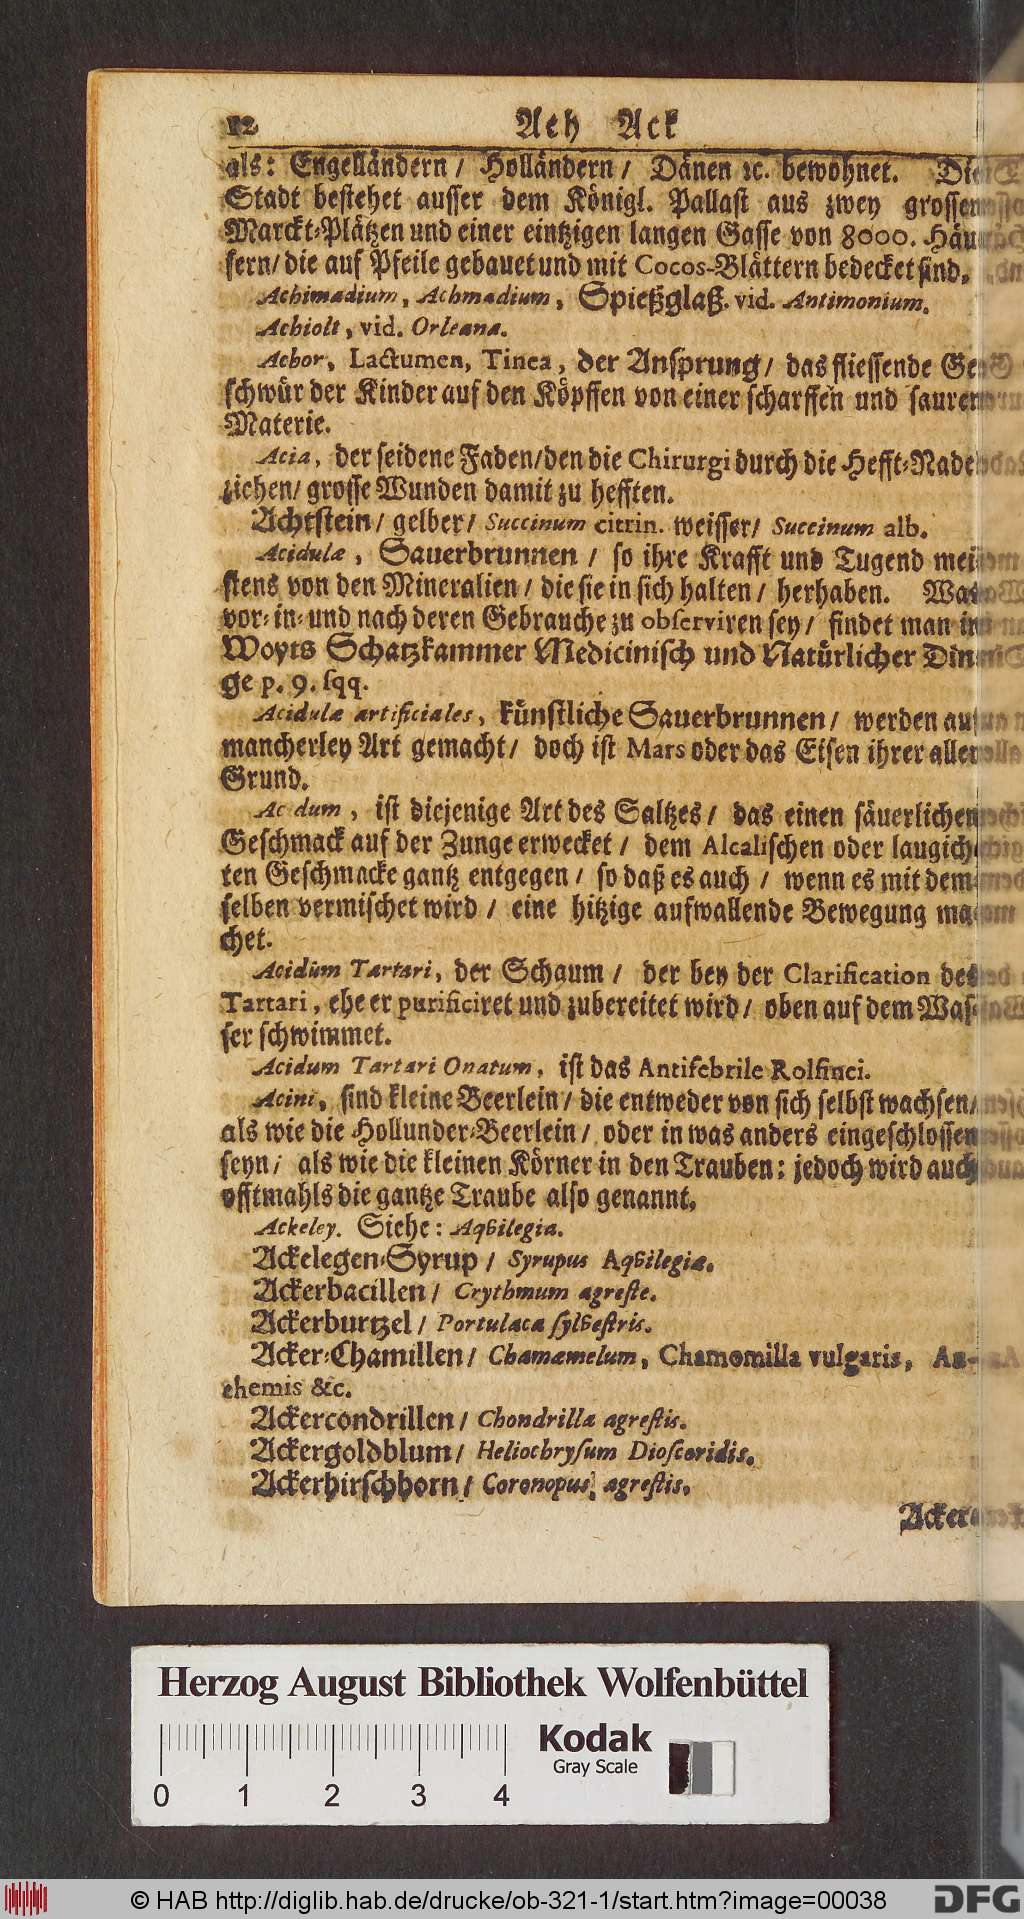 12 Ach Ack
als: Engelländern / Holländern / Dänen ꝛc. bewohnet. Die
Stadt bestehet ausser dem Königl. Pallast aus zwey grossen
Marckt-Plätzen und einer eintzigen langen Gasse von 8000. Häu-
sern/ die auf Pfeile gebauet und mit Cocos-Blättern bedecket sind.
Achimadium, Achmadium, Spießglaß. vid. Antimonium.
Achiolt, vid. Orleana.
Achor, Lactumen, Tinea, der Ansprung/ das fliessende Ge-
schwür der Kinder auf den Köpffen von einer scharffen und sauren
Materie.
Acia, der seidene Faden/ den die Chirurgi durch die Hefft-Nadel
ziehen/ grosse Wunden damit zu hefften.
Achtstein/ gelber/ Succinum citrin. weisser/ Succinum alb.
Acidulæ, Sauerbrunnen / so ihre Krafft und Tugend mei-
stens von den Mineralien / die sie in sich halten / herhaben. Was
vor- in- und nach deren Gebrauche zu observiren sey / findet man in
Woyts Schatzkammer Medicinisch und Natürlicher Din-
ge p. 9. sqq.
Acidulæ artificiales, künstliche Sauerbrunnen / werden auf
mancherley Art gemacht / doch ist Mars oder das Eisen ihrer aller
Grund.
Ac dum, ist diejenige Art des Saltzes / das einen säuerlichen
Geschmack auf der Zunge erwecket / dem Alcalischen oder laugich-
ten Geschmacke gantz entgegen / so daß es auch / wenn es mit dem-
selben vermischet wird / eine hitzige aufwallende Bewegung ma-
chet.
Acidum Tartari, der Schaum / der bey der Clarification des
Tartari, ehe er purificiret und zubereitet wird / oben auf dem Was-
ser schwimmet.
Acidum Tartari Onatum, ist das Antifebrile Rolfinci.
Acini, sind kleine Beerlein / die entweder von sich selbst wachsen/
als wie die Hollunder-Beerlein / oder in was anders eingeschlossen
seyn / als wie die kleinen Körner in den Trauben: jedoch wird auch
offtmahls die gantze Traube also genannt.
Ackeley. Siehe: Aqvilegia.
Ackelegen-Syrup / Syrupus Aqvilegiæ.
Ackerbacillen / Crythmum agreste.
Ackerburtzel / Portulaca sylvestris.
Acker-Chamillen / Chamæmelum, Chamomilla vulgaris, An-
themis &c.
Ackercondrillen / Chondrilla agrestis.
Ackergoldblum / Heliochrysum Dioscoridis.
Ackerhirschhorn / Coronopus agrestis.
Herzog August Bibliothek Wolfenbüttel
Kodak
Gray Scale
0 1 2 3 4
© HAB http://diglib.hab.de/drucke/ob-321-1/start.htm?image=00038
DFG